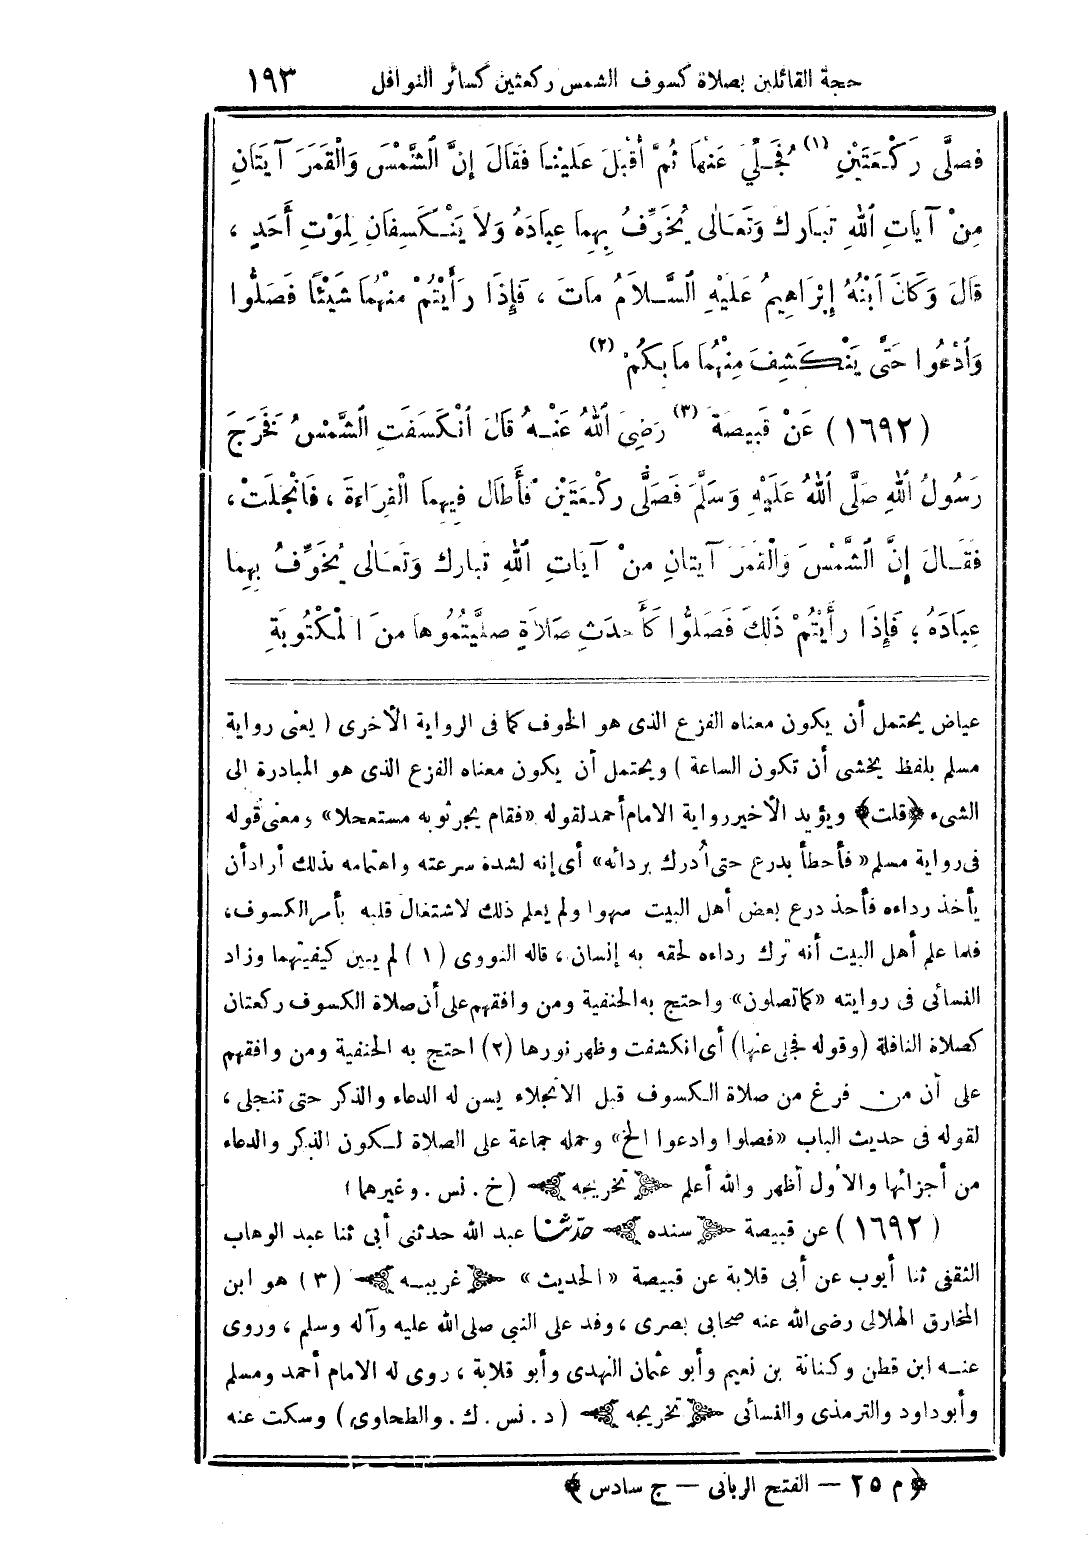 حجة القائلين بصلاة كسوف الشمس ركعتين كسائر النوافل ١٩٣
فَصَلَّى رَكْعَتَيْنِ (١) فَجُلِّيَ عَنْهَا ثُمَّ أَقْبَلَ عَلَيْنَا فَقَالَ إِنَّ الشَّمْسَ وَالْقَمَرَ آيَتَانِ
مِنْ آيَاتِ اللهِ تَبَارَكَ وَتَعَالَى يُخَوِّفُ بِهِمَا عِبَادَهُ وَلاَ يَنْكَسِفَانِ لِمَوْتِ أَحَدٍ ،
قَالَ وَكَانَ ابْنُهُ إِبْرَاهِيمُ عَلَيْهِ السَّلاَمُ مَاتَ ، فَإِذَا رَأَيْتُمْ مِنْهُمَا شَيْئًا فَصَلُّوا
وَادْعُوا حَتَّى يَنْكَشِفَ مِنْهُمَا مَا بِكُمْ (٢)
(١٦٩٢) عَنْ قَبِيصَةَ (٣) رَضِيَ اللهُ عَنْهُ قَالَ انْكَسَفَتِ الشَّمْسُ فَخَرَجَ
رَسُولُ اللهِ صَلَّى اللهُ عَلَيْهِ وَسَلَّمَ فَصَلَّى رَكْعَتَيْنِ فَأَطَالَ فِيهِمَا الْقِرَاءَةَ ، فَانْجَلَتْ ،
فَقَالَ إِنَّ الشَّمْسَ وَالْقَمَرَ آيَتَانِ مِنْ آيَاتِ اللهِ تَبَارَكَ وَتَعَالَى يُخَوِّفُ بِهِمَا
عِبَادَهُ ؛ فَإِذَا رَأَيْتُمْ ذَلِكَ فَصَلُّوا كَأَحْدَثِ صَلاَةٍ صَلَّيْتُمُوهَا مِنَ الْمَكْتُوبَةِ
عياض يحتمل أن يكون معناه الفزع الذى هو الخوف كما فى الرواية الأخرى ( يعنى رواية
مسلم بلفظ يخشى أن تكون الساعة ) ويحتمل أن يكون معناه الفزع الذى هو المبادرة الى
الشىء ﴿قلت﴾ ويؤيد الأخير رواية الامام أحمد لقوله «فقام يجر ثوبه مستعجلا» ومعنى قوله
فى رواية مسلم « فأخطأ بدرع حتى أدرك بردائه» أى إنه لشدة سرعته واهتمامه بذلك أراد أن
يأخذ رداءه فأخذ درع بعض أهل البيت سهوا ولم يعلم ذلك لاشتغال قلبه بأمر الكسوف،
فلما علم أهل البيت أنه ترك رداءه لحقه به إنسان ، قاله النووى (١) لم يبين كيفيتهما وزاد
النسائى فى روايته «كما تصلون» واحتج به الحنفية ومن وافقهم على أن صلاة الكسوف ركعتان
كصلاة النافلة (وقوله فجلى عنها) أى انكشفت وظهر نورها (٢) احتج به الحنفية ومن وافقهم
على أن من فرغ من صلاة الكسوف قبل الانجلاء يسن له الدعاء والذكر حتى تنجلى ،
لقوله فى حديث الباب «فصلوا وادعوا الخ» وحمله جماعة على الصلاة لكون الذكر والدعاء
من أجزائها والأول أظهر والله أعلم تخريجه ( خ . نس . وغيرهما )
(١٦٩٢) عن قبيصة سنده حدّثنا عبد الله حدثنى أبى ثنا عبد الوهاب
الثقفى ثنا أيوب عن أبى قلابة عن قبيصة «الحديث» غريبه (٣) هو ابن
المخارق الهلالى رضى الله عنه صحابى بصرى ، وفد على النبى صلى الله عليه وآله وسلم ، وروى
عنه ابن قطن وكنانة بن نعيم وأبو عثمان النهدى وأبو قلابة ، روى له الامام أحمد ومسلم
وأبو داود والترمذى والنسائى تخريجه ( د . نس . ك . والطحاوى ) وسكت عنه
﴿ م ٢٥ — الفتح الربانى — ج سادس ﴾